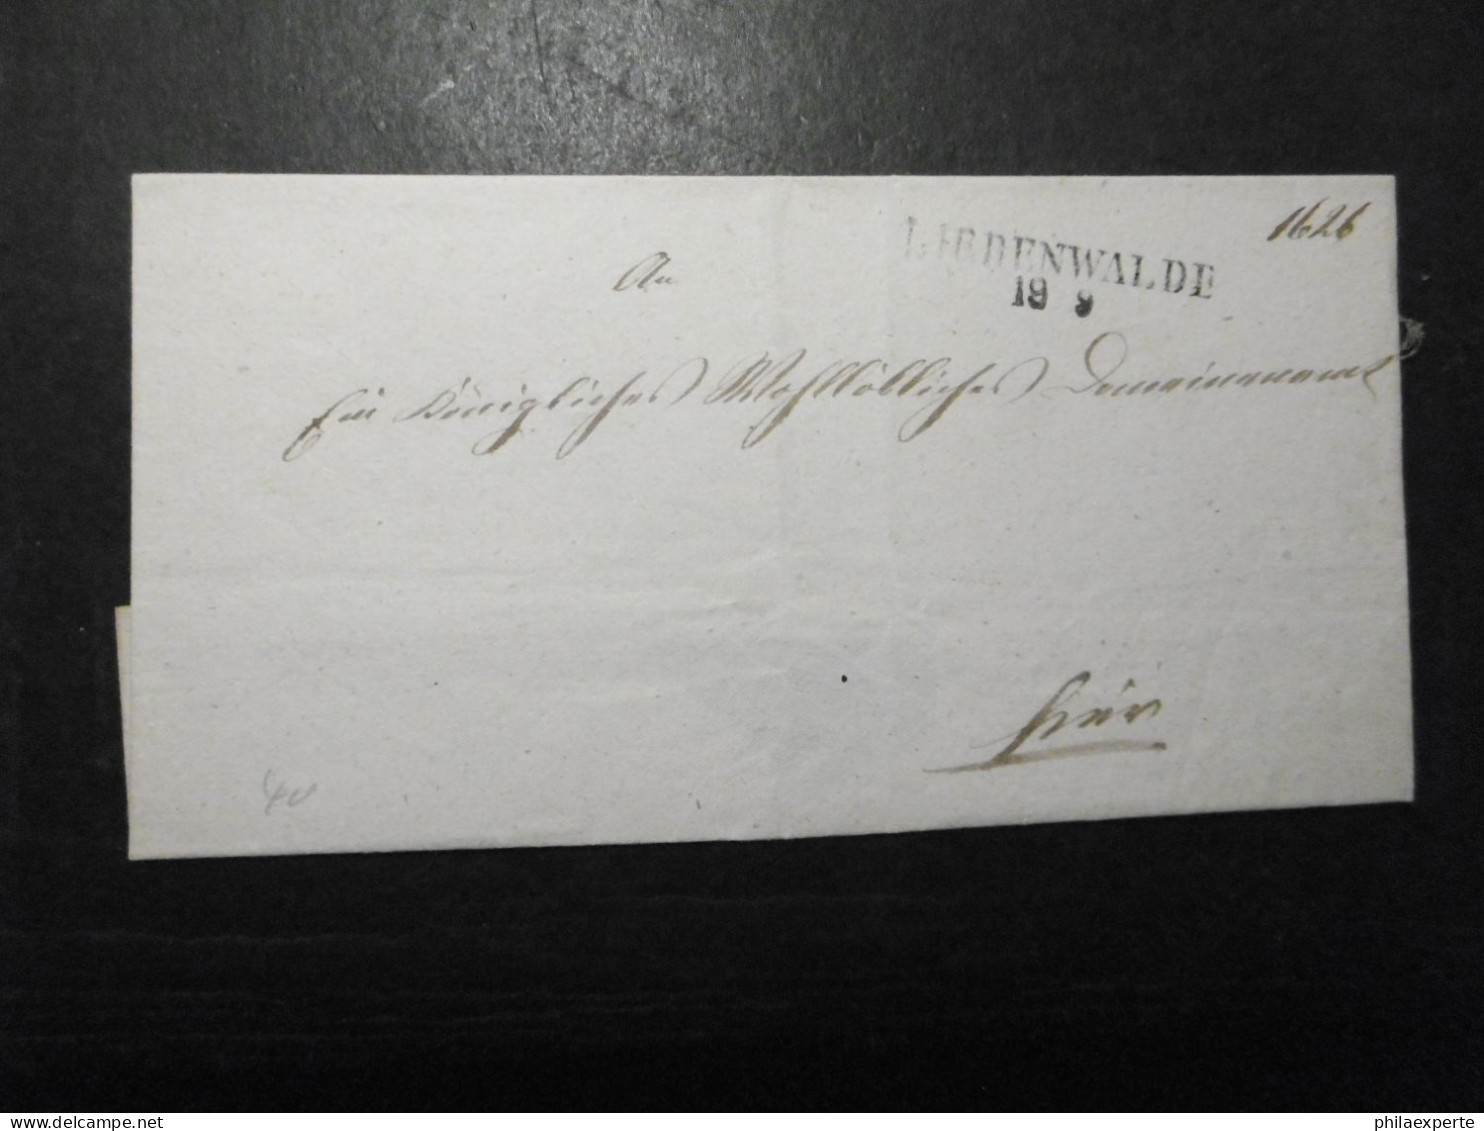 LIEBENWALDE
1626
19 9
An
Ein Königliches Wohllöbliches Domainenamt
hier
delcampe.net
philaexperte